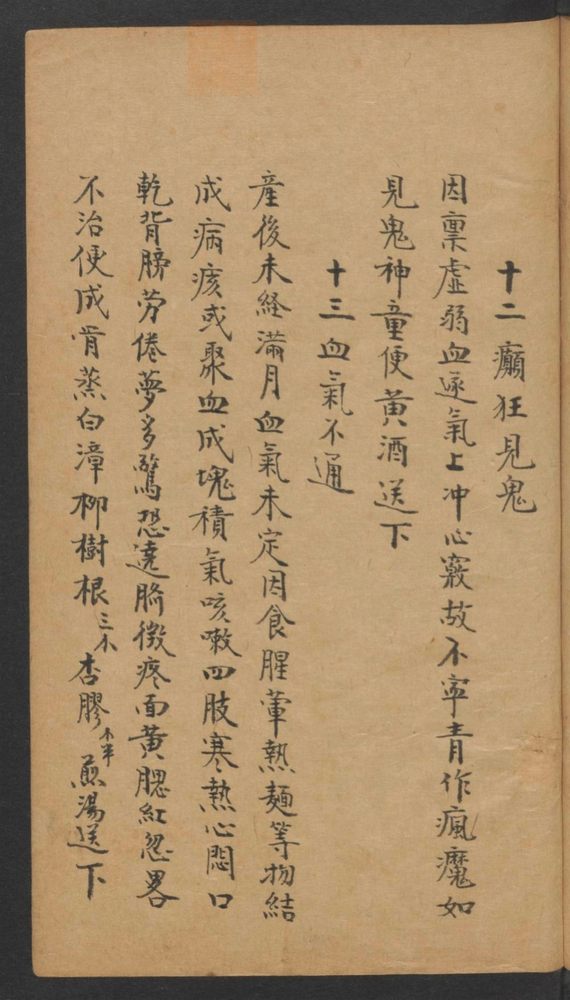 十二癲狂見鬼
因稟虛弱血逐氣上冲心竅故不寧青作瘋魔如
見鬼神童便黄酒送下
十三血氣不通
産後未経滿月血氣未定因食腥葷熱麺等物結
成病痎或聚血成塊積氣咳嗽四肢寒熱心悶口
乾背膀劳倦夢多驚恐遶臍微疼面黄腮紅忽畧
不治便成骨蒸白漳柳樹根三个杏膠个半煎湯送下